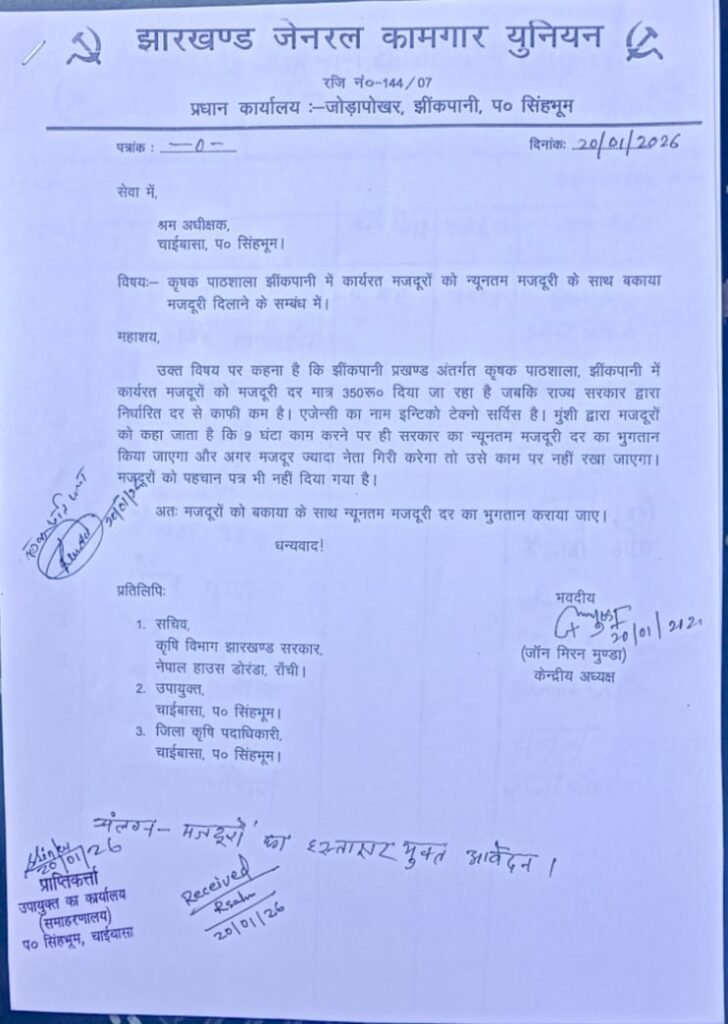 झारखण्ड जेनरल कामगार युनियन
रजि नं०-144/07
प्रधान कार्यालय :–जोड़ापोखर, झींकपानी, प० सिंहभूम
पत्रांक : —0— दिनांकः 20/01/2026
सेवा में,
श्रम अधीक्षक,
चाईबासा, प० सिंहभूम।
विषयः– कृषक पाठशाला झींकपानी में कार्यरत मजदूरों को न्यूनतम मजदूरी के साथ बकाया
मजदूरी दिलाने के सम्बंध में।
महाशय,
उक्त विषय पर कहना है कि झींकपानी प्रखण्ड अंतर्गत कृषक पाठशाला, झींकपानी में
कार्यरत मजदूरों को मजदूरी दर मात्र 350रू० दिया जा रहा है जबकि राज्य सरकार द्वारा
निर्धारित दर से काफी कम है। एजेन्सी का नाम इन्टिको टेक्नो सर्विस है। मुंशी द्वारा मजदूरों
को कहा जाता है कि 9 घंटा काम करने पर ही सरकार का न्यूनतम मजदूरी दर का भुगतान
किया जाएगा और अगर मजदूर ज्यादा नेता गिरी करेगा तो उसे काम पर नहीं रखा जाएगा।
मजदूरों को पहचान पत्र भी नहीं दिया गया है।
अतः मजदूरों को बकाया के साथ न्यूनतम मजदूरी दर का भुगतान कराया जाए।
धन्यवाद!
20/01/26
प्रतिलिपिः
1. सचिव,
कृषि विभाग झारखण्ड सरकार,
नेपाल हाउस डोरंडा, राँची।
2. उपायुक्त,
चाईबासा, प० सिंहभूम।
3. जिला कृषि पदाधिकारी,
चाईबासा, प० सिंहभूम।
भवदीय
20/01/2026
(जॉन मिरन मुण्डा)
केन्द्रीय अध्यक्ष
संलग्न– मजदूरों का हस्ताक्षर युक्त आवेदन।
20/01/26
प्राप्तिकर्त्ता
उपायुक्त का कार्यालय
(समाहरणालय)
प० सिंहभूम, चाईबासा
Received
20/01/26